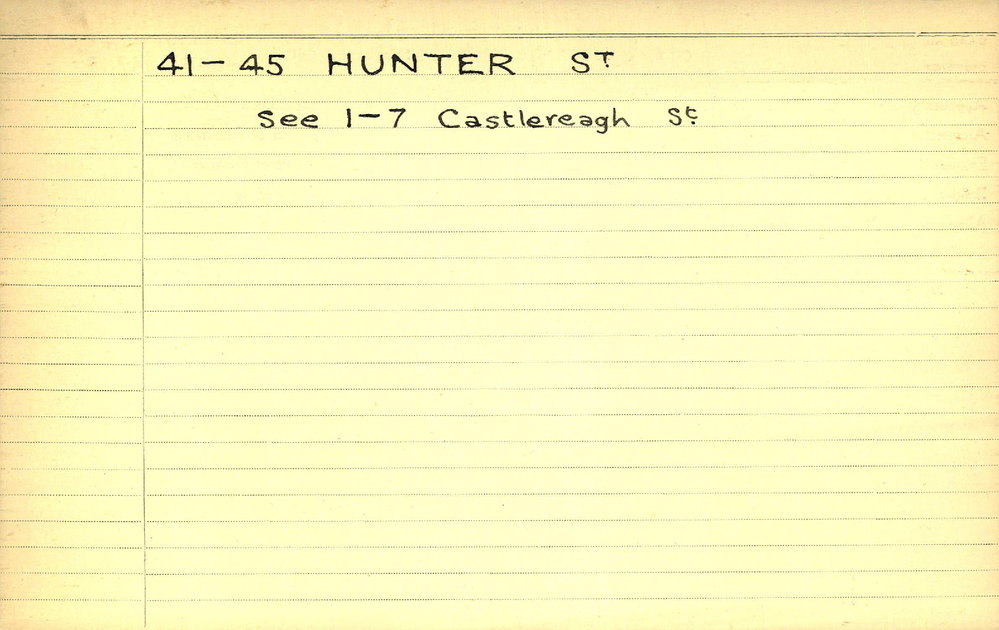 41-45 HUNTER ST
See 1-7 Castlereagh St